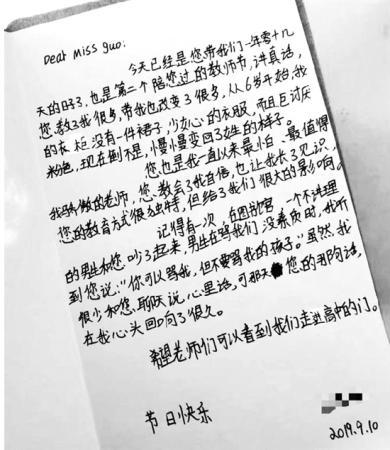 Dear Miss guo:
今天已经是您带我们一年零十几
天的日子了,也是第二个陪您过的教师节,讲真话,
您教了我很多,带我也改变了很多,从6岁开始,我
的衣柜没有一件裙子,少女心的衣服,而且巨讨厌
粉色,现在倒不是,慢慢变回了女生的样子。
您也是我一直以来最怕、最值得
我骄傲的老师,您教会了我自信,也让我长了见识,
您的教育方式很独特,但给了我们很大的影响。
记得有一次,在图欣宫,一个不讲理
的男生和您吵了起来,男生在骂我们没素质时,我听
到您说:“你可以骂我,但不要骂我的孩子。”虽然,我
很少和您聊天说心里话,可那天您的那句话,
在我心头回响了很久。
希望老师们可以看到我们走进高中的门。
节日快乐
2019.9.10